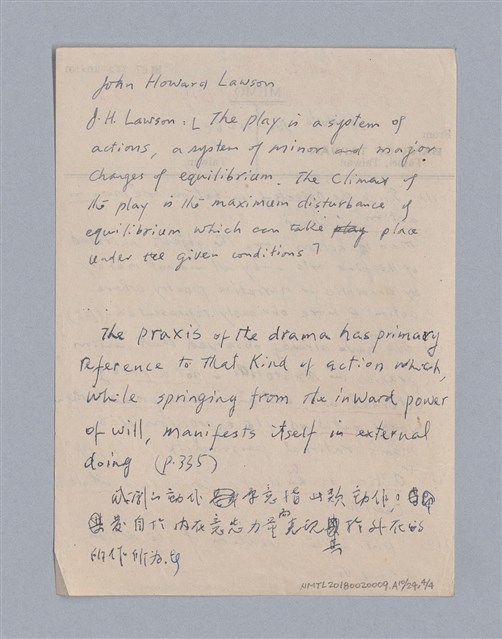 John Howard Lawson
J.H. Lawson:「The play is a system of
actions, a system of minor and major
changes of equilibrium. The Climax of
the play is the maximum disturbance of
equilibrium which can take play place
under the given conditions」
The praxis of the drama has primary
reference to that kind of action which,
while springing from the inward power
of will, manifests itself in external
doing (p.335)
戲劇的動作 主意指此類動作。
發自於內在意志力量而表現其於外在的
所作所為。
NMTL20180020009.A